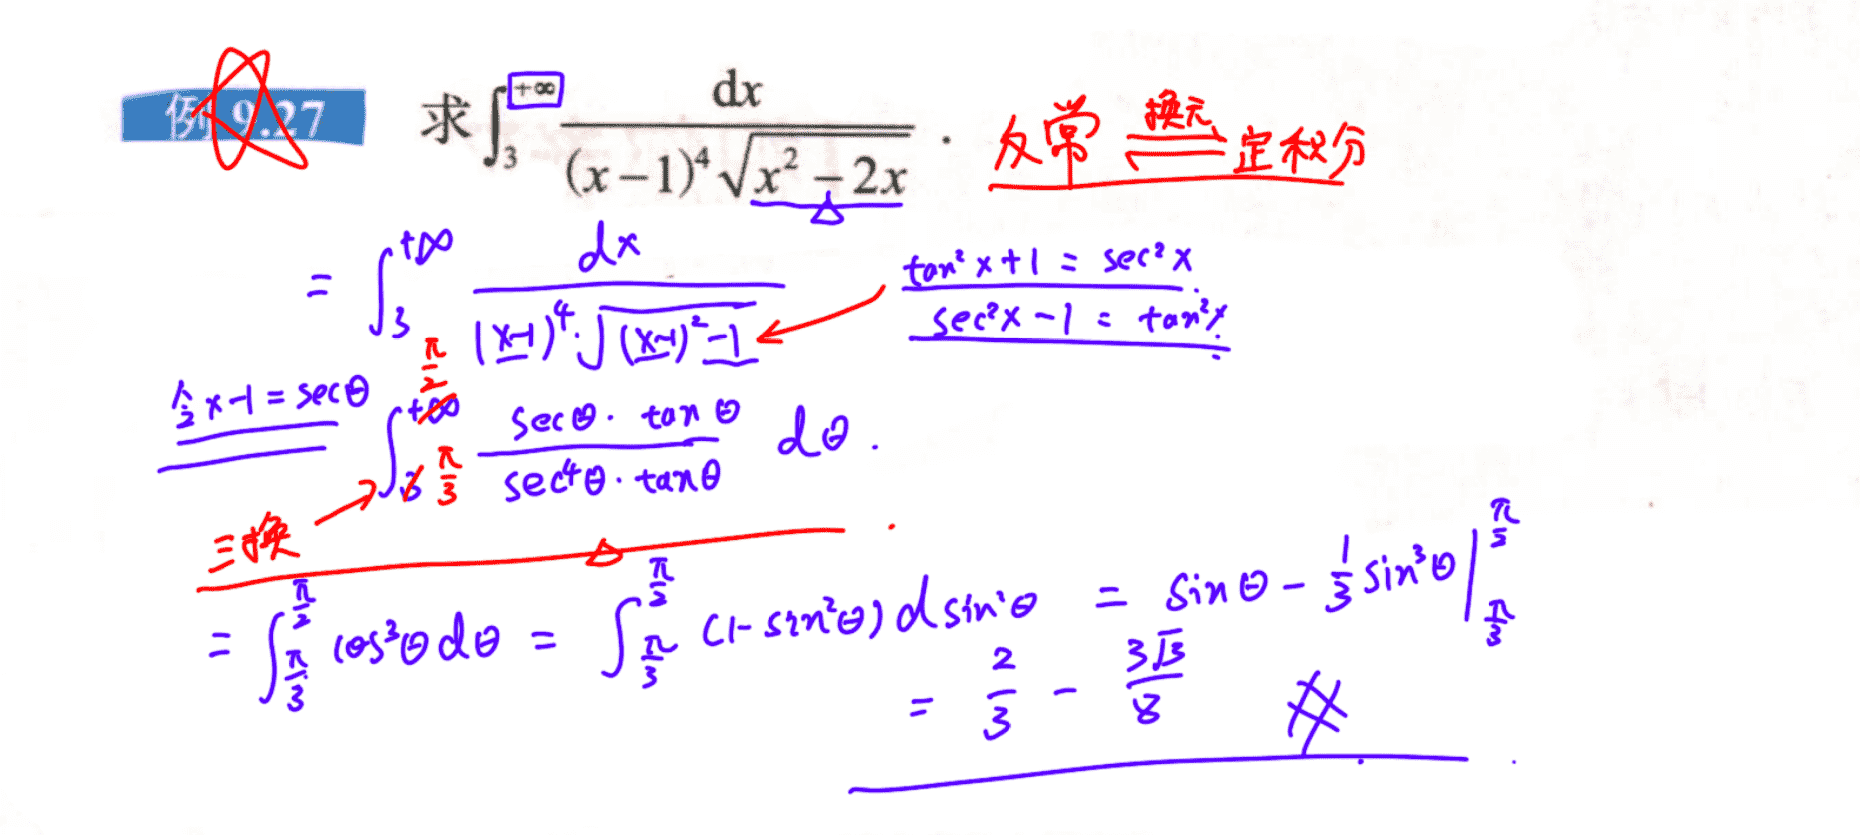 例 9.27 求∫₃^{+∞} dx / ((x−1)⁴√(x²−2x)) . 反常 换元 ⇌ 定积分
= ∫₃^{+∞} dx / ((x-1)⁴·√((x-1)²-1))
tan²x+1 = sec²x
sec²x-1 = tan²x
令x-1=secθ ∫_{3 π/3}^{+∞ π/2} secθ·tanθ / (sec⁴θ·tanθ) dθ.
三换
= ∫_{π/3}^{π/2} cos³θdθ = ∫_{π/3}^{π/2} (1-sin²θ)dsinθ = sinθ-1/3 sin³θ|_{π/3}^{π/2}
= 2/3 - 3√3/8 #